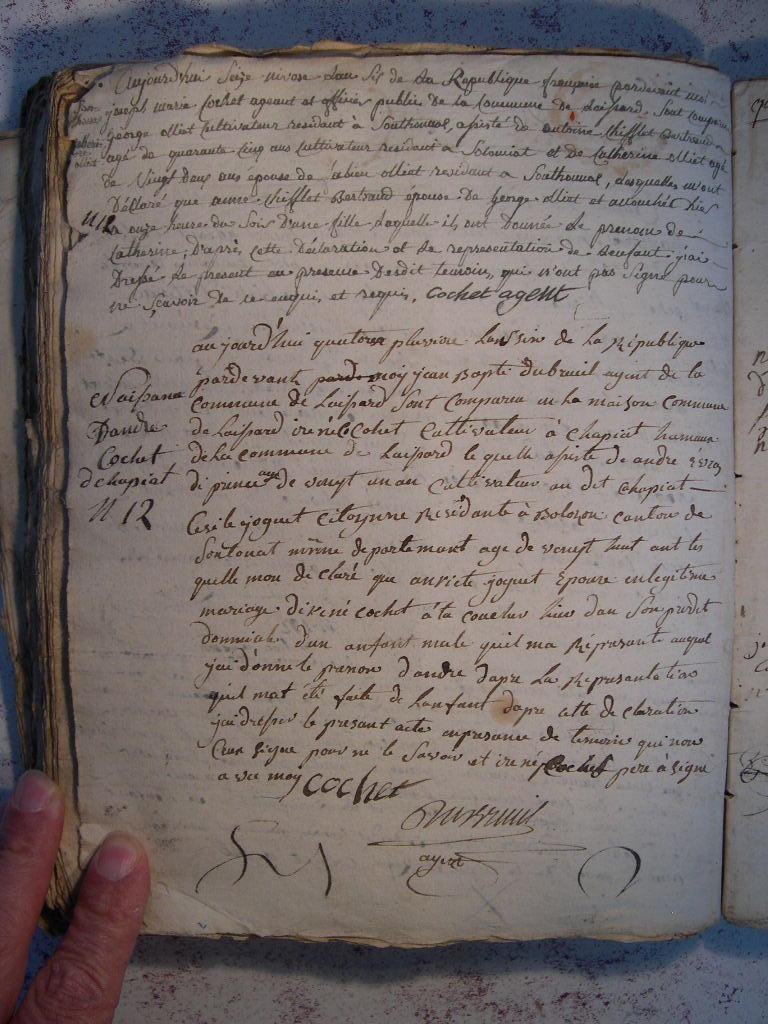 Aujourd'huis seize nivose L'an six de La Republique française pardevant moi
joseph marie Cochet agent et officier public de la Commune de Laissard, sont comparus
George olliet Cultivateur residant à Southonnas, assisté de antoine Chifflet Bertrand
agé de quarante Cinq ans Cultivateur residant a Solomiat et de Catherine olliet agé
de Vingt Deux ans epouse de fabien olliet residant a Southonnas, Lesquelles m'ont
Déclaré que anne Chifflet Bertrand épouse De George olliet est accouchée hier
a onze heure du Soir D'une fille Laquelle ils ont Donnée Le prenom de
Catherine, D'après Cette Déclaration et La representation de L'enfant j'ai
Dressé Le present en presence Desdit temoins, qui n'ont pas Signé pour
ne sçavoir de ce enquis et requis, Cochet agent
N 11
au jourd'hui quatorze pluviose lan six de la République
pardevant moy jean Bapti dubreuil agent de la
commune de Laissard sont comparu en la maison commune
de Laissard irené Cochet Cultivateur à chapiat hamaux
de la commune de Laissard le quelle assiste de andre
di prine de vingt un an Cultivateur au dit chapiat
Cesile joguet Citoyenne Résidante à Bolozon canton de
Sontonat mème departemant age de vengt huit ant les
quelle mon de claré que anriete joguet Epouse en legitime
mariage d'irené cochet à la coucher hier dan son presdit
domicile d'un anfant male quil ma Répresante auquel
jai donné le prenon d'andre dapre La Represantation
quil mat été faite de Lanfant dapre cette de claration
jai dresser le presant acte an presance de temoin qui non
signe pour ne le savoir et irené Cochet pere à signe
avec moy Cochet
Dubreuil
agent
Naissance
D'andre
Cochet
d chapiat
N 12